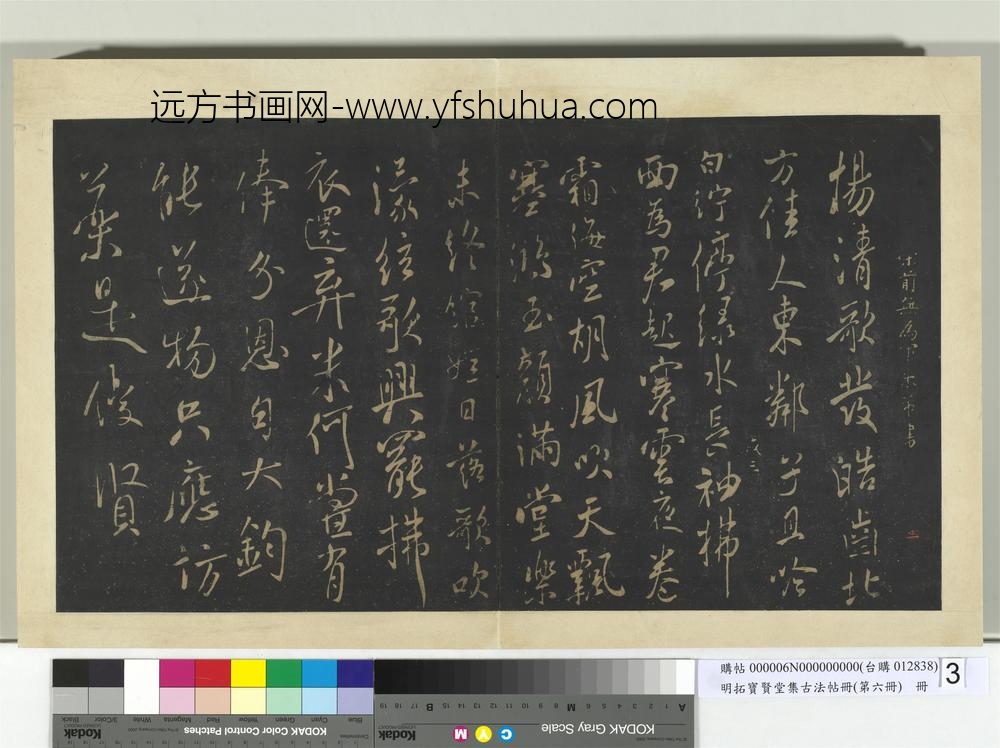 远方书画网-www.yfshuhua.com
揚清歌發皓齒北
方佳人東鄰子且吟
白紵停綠水長袖拂
面為君起寒雲夜卷
霜海空胡風吹天飄
塞鴻玉顏滿堂樂
未終館娃日落歌吹
濛弦歌興罷拂
衣還棄米何嘗有
俸分恩自大鈞
能遊物只應訪
藥是優賢
購帖 000006N000000000(台購 012838)
明拓寶賢堂集古法帖冊(第六冊) 冊
3
KODAK Color Control Patches
Kodak
Blue
Cyan
Green
Yellow
Red
Magenta
White
3/Color
Black
KODAK Gray Scale
Kodak
C
Y
M
A 1 2 3 4 5 6 M 8 9 10 11 12 13 14 15 B 17 18 19